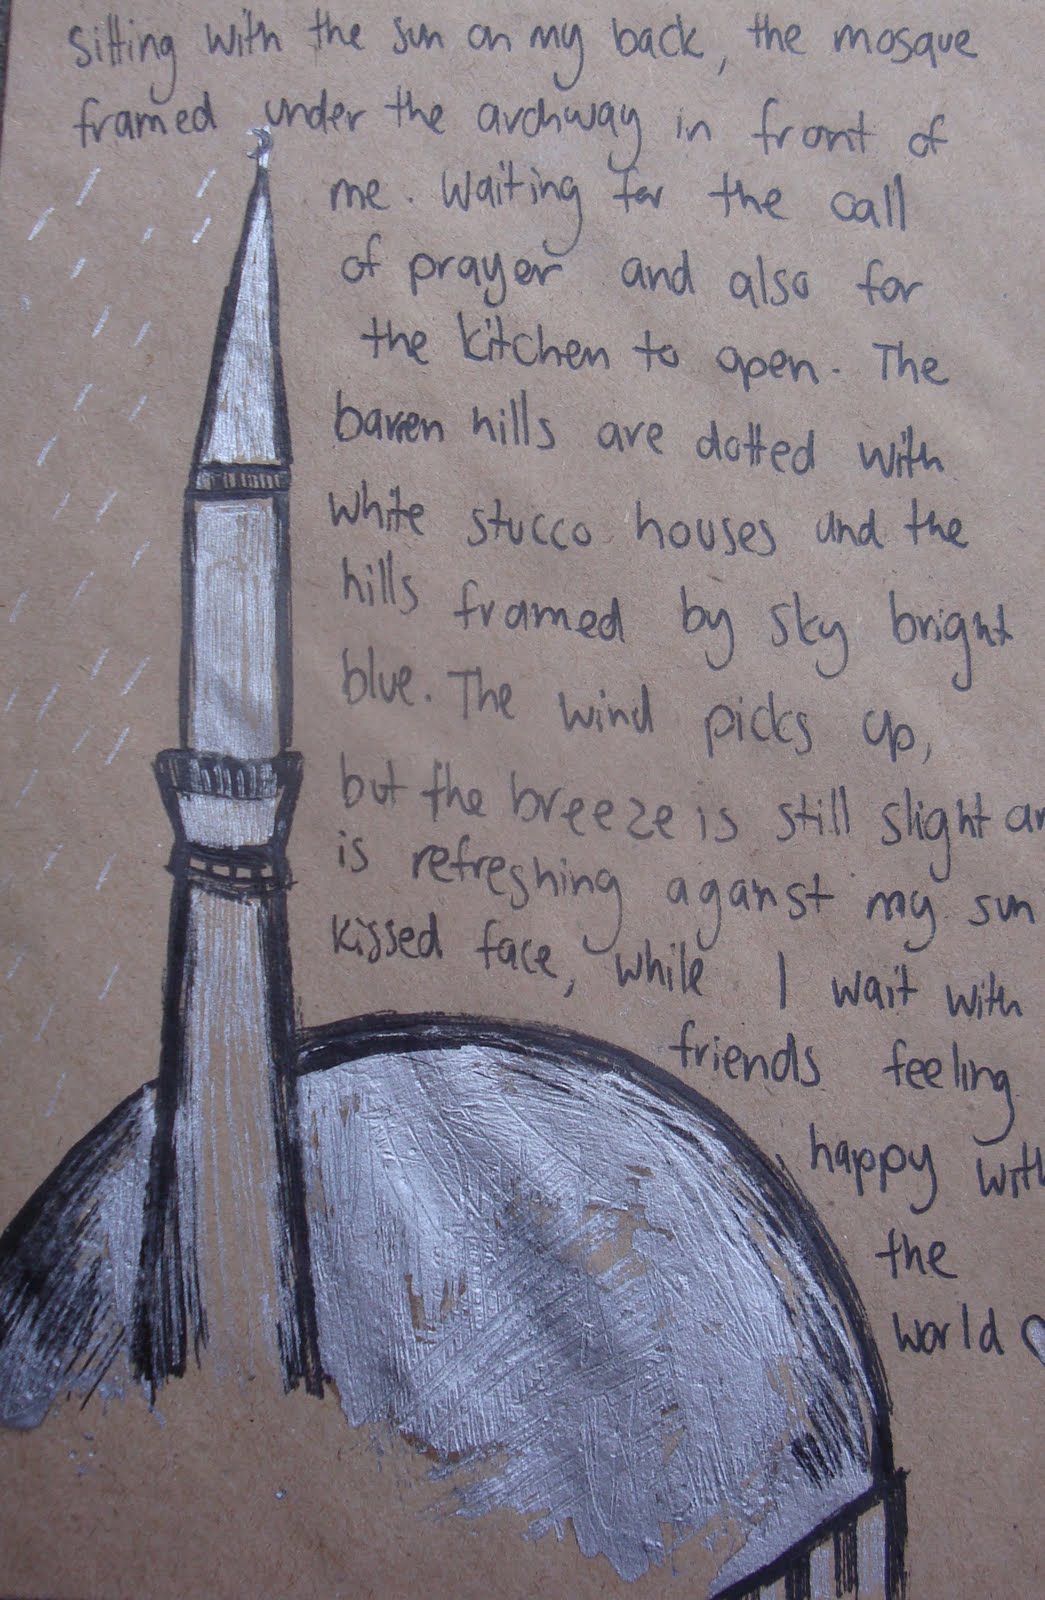 Sitting with the sun on my back, the mosque
framed under the archway in front of
me. Waiting for the call
of prayer and also for
the kitchen to open. The
barren hills are dotted with
white stucco houses and the
hills framed by sky bright
blue. The wind picks up,
but the breeze is still slight an
is refreshing against my sun
kissed face, while I wait with
friends feeling
happy with
the
world